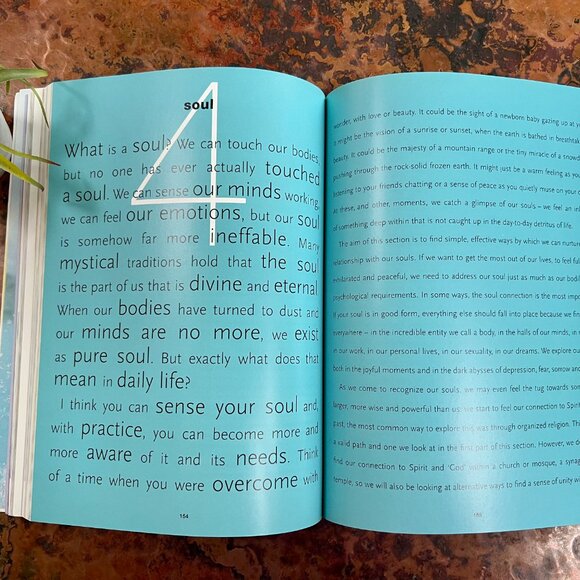 soul
4
What is a soul? We can touch our bodies,
but no one has ever actually touched
a soul. We can sense our minds working,
we can feel our emotions, but our soul
is somehow far more ineffable. Many
mystical traditions hold that the soul
is the part of us that is divine and eternal.
When our bodies have turned to dust and
our minds are no more, we exist
as pure soul. But exactly what does that
mean in daily life?
I think you can sense your soul and,
with practice, you can become more and
more aware of it and its needs. Think
of a time when you were overcome with
154
wonder, with love or beauty. It could be the sight of a newborn baby gazing up at
might be the vision of a sunrise or sunset, when the earth is bathed in
beauty. It could be the majesty of a mountain range or the tiny miracle of a
pushing through the rock-solid frozen earth. It might just be a warm feeling as
listening to your friends chatting or a sense of peace as you quietly muse on your
At these, and other, moments, we catch a glimpse of our souls – we feel an
of something deep within that is not caught up in the day-to-day detritus of life.
The aim of this section is to find simple, effective ways by which we can
relationship with our souls. If we want to get the most out of our lives, to feel
exhilarated and peaceful, we need to address our soul just as much as our
psychological requirements. In some ways, the soul connection is the most
If your soul is in good form, everything else should fall into place because we
everywhere – in the incredible entity we call a body, in the halls of our minds, in
in our work, in our personal lives, in our sexuality, in our dreams. We explore
both in the joyful moments and in the dark abysses of depression, fear, sorrow and
As we come to recognize our souls, we may even feel the tug towards
larger, more wise and powerful than us: we start to feel our connection to
past, the most common way to explore this was through organized religion.
a valid path and one we look at in the first part of this section. However, we
find our connection to Spirit and 'God' within a church or mosque, a
temple, so we will also be looking at alternative ways to find a sense of unity